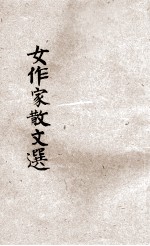 女作家散文選